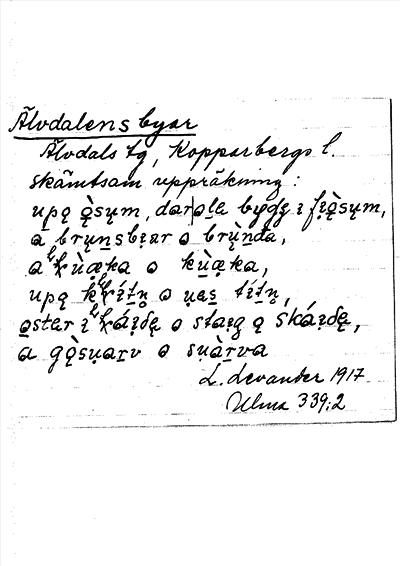 Älvdalens byar
Älvdals tg, Kopparbergs l.
skämtsam uppräkning:
upą ǫ̀sum, darola bygdʒ i fįǫ̀sum,
a brunsbįar o brùnda,
a kùǫka o kùǫka,
upą kítn o ues títn,
oster i káįdę o staįg ǫ skáįdę,
a gǫ̀suarv o suàrva
L. Levander 1917
Ulma 339:2